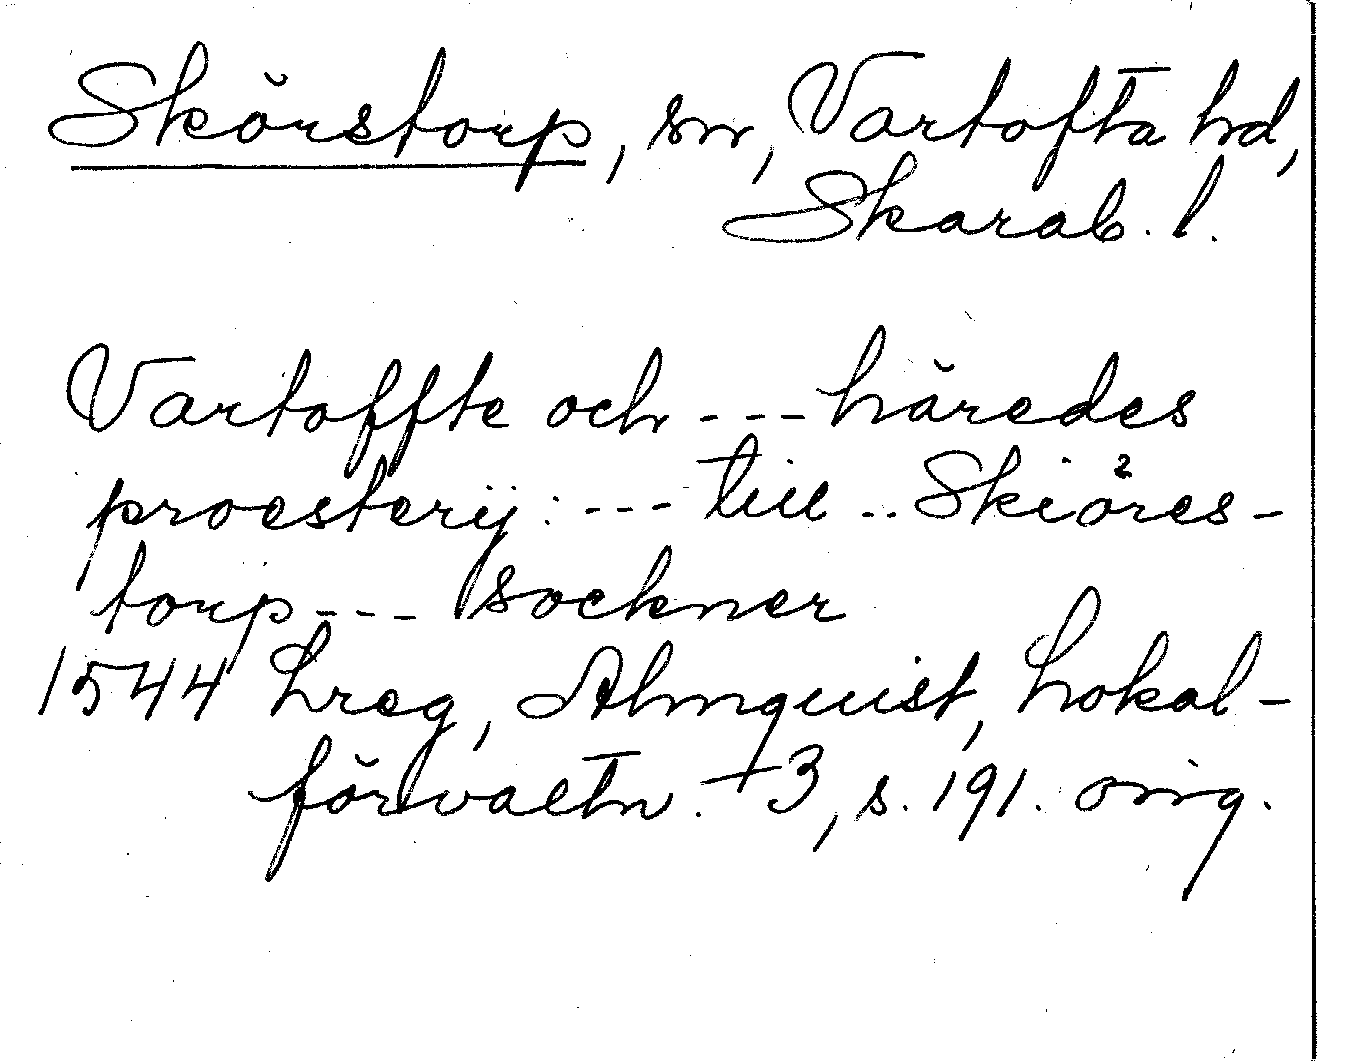 Skörstorp, sn, Vartofta hd,
Skarab. l.
Vartoffte och --- häredes
proesterij: --- till .. Skiöres-
torp --- sockner
1544 Lreg, Almquist, Lokal-
förvaltn. +3, s. 191. orig.